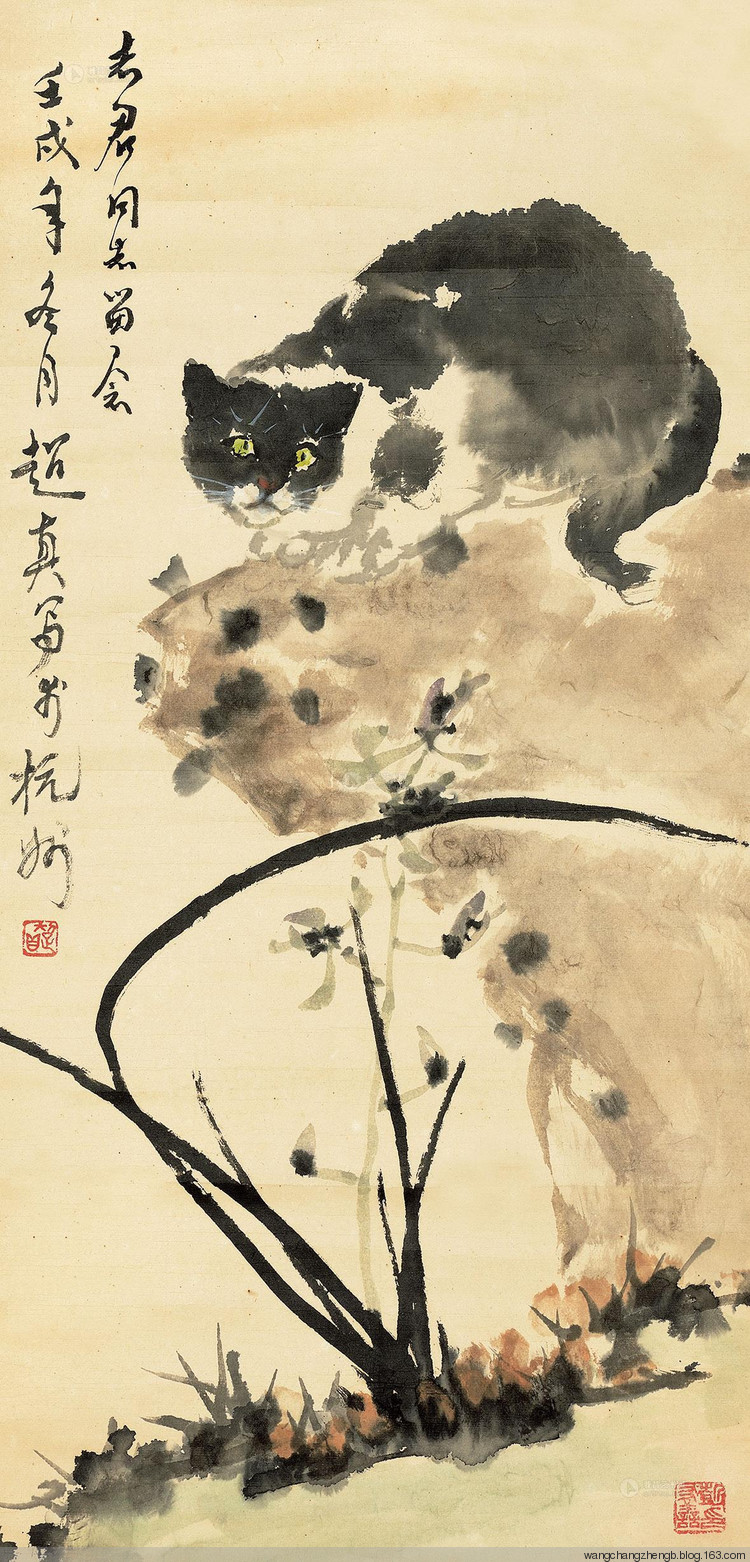 志君同志留念
壬戌年冬月超真写于杭州
wangchangzhengb.blog.163.com